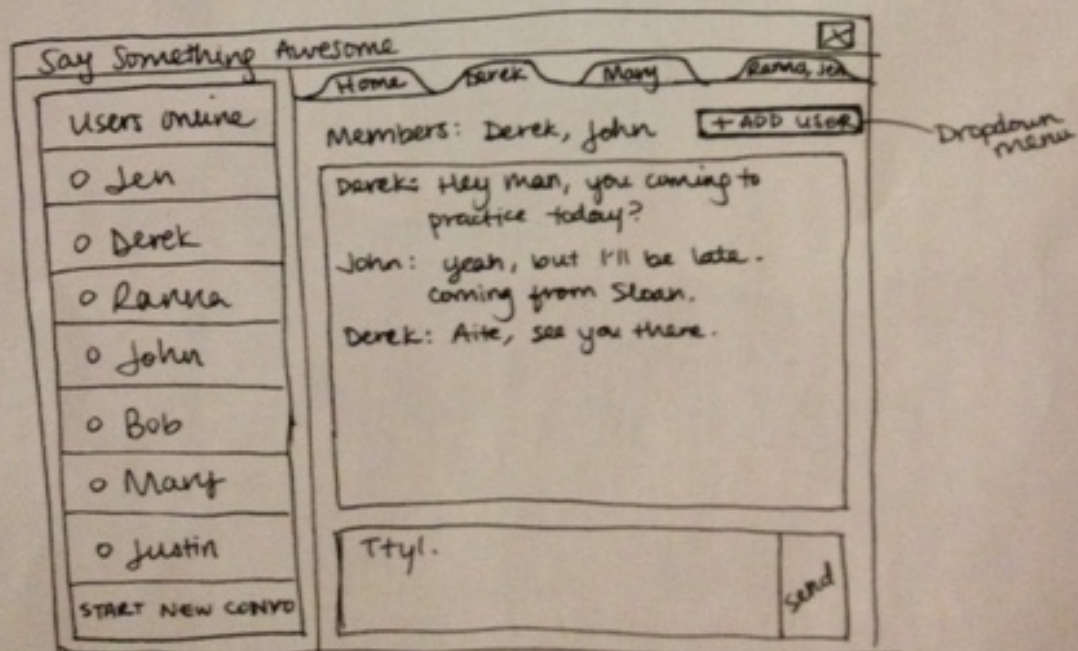 Say Something Awesome
X
Home
Derek
Mary
Ranna, Jen
Users online
Jen
Derek
Ranna
John
Bob
Mary
Justin
START NEW CONVO
Members: Derek, John
+ ADD USER
Dropdown
menu
Derek: Hey man, you coming to
practice today?
John: yeah, but I'll be late.
coming from Sloan.
Derek: Aite, see you there.
Ttyl.
Send